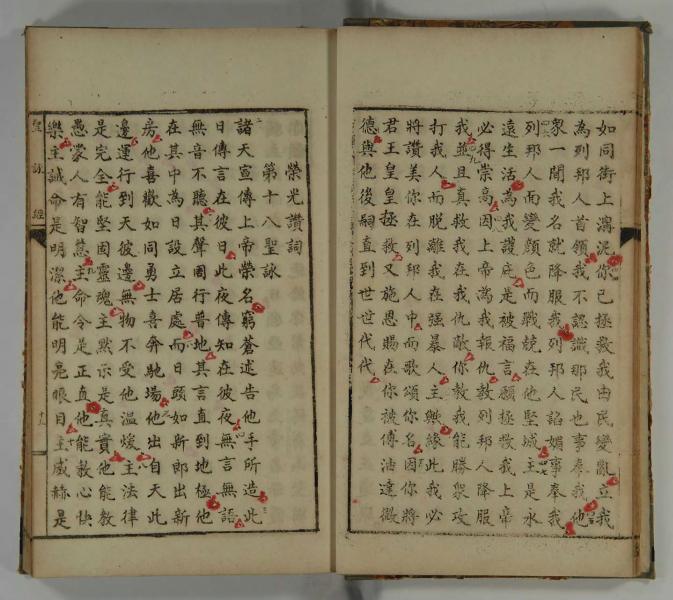 如同街上瀉泥你已拯救我由民變亂立我
為列邦人首領我不認識那民也事奉我他
衆一聞我名就降服我列邦人諂媚事奉我
列邦人而變顏色而戰兢在他堅城主是永
遠生活為我護庇是被福言願拯救我上帝
必得崇高因上帝為我報仇敦列邦人降服
我並且真救我在我仇敵你教我能勝衆攻
打我人而脫離我在强暴人主緣此我必
將讚美你在列邦人中而歌頌你名因你將
君王皇皇拯救又施恩賜在你被傅油達微
德與他後嗣直到世世代代
榮光讚詞
第十八聖詠
諸天宣傳上帝榮名穹蒼述告他手所造此
日傳言在彼日此夜傳知在彼夜無言無語
無音不聽其聲周行普地其言直到地極他
在其中為日設立居處而日頭如新郎出新
房他喜歡如同勇士喜奔馳場他出自天此
邊運行到天彼邊無物不受他溫煖主法律
是完全能堅固靈魂主默示是真實他能教
愚蒙人有智慧主命令是正直他能教心快
樂主誡命是明潔他能明亮眼目主威赫是
聖詠經